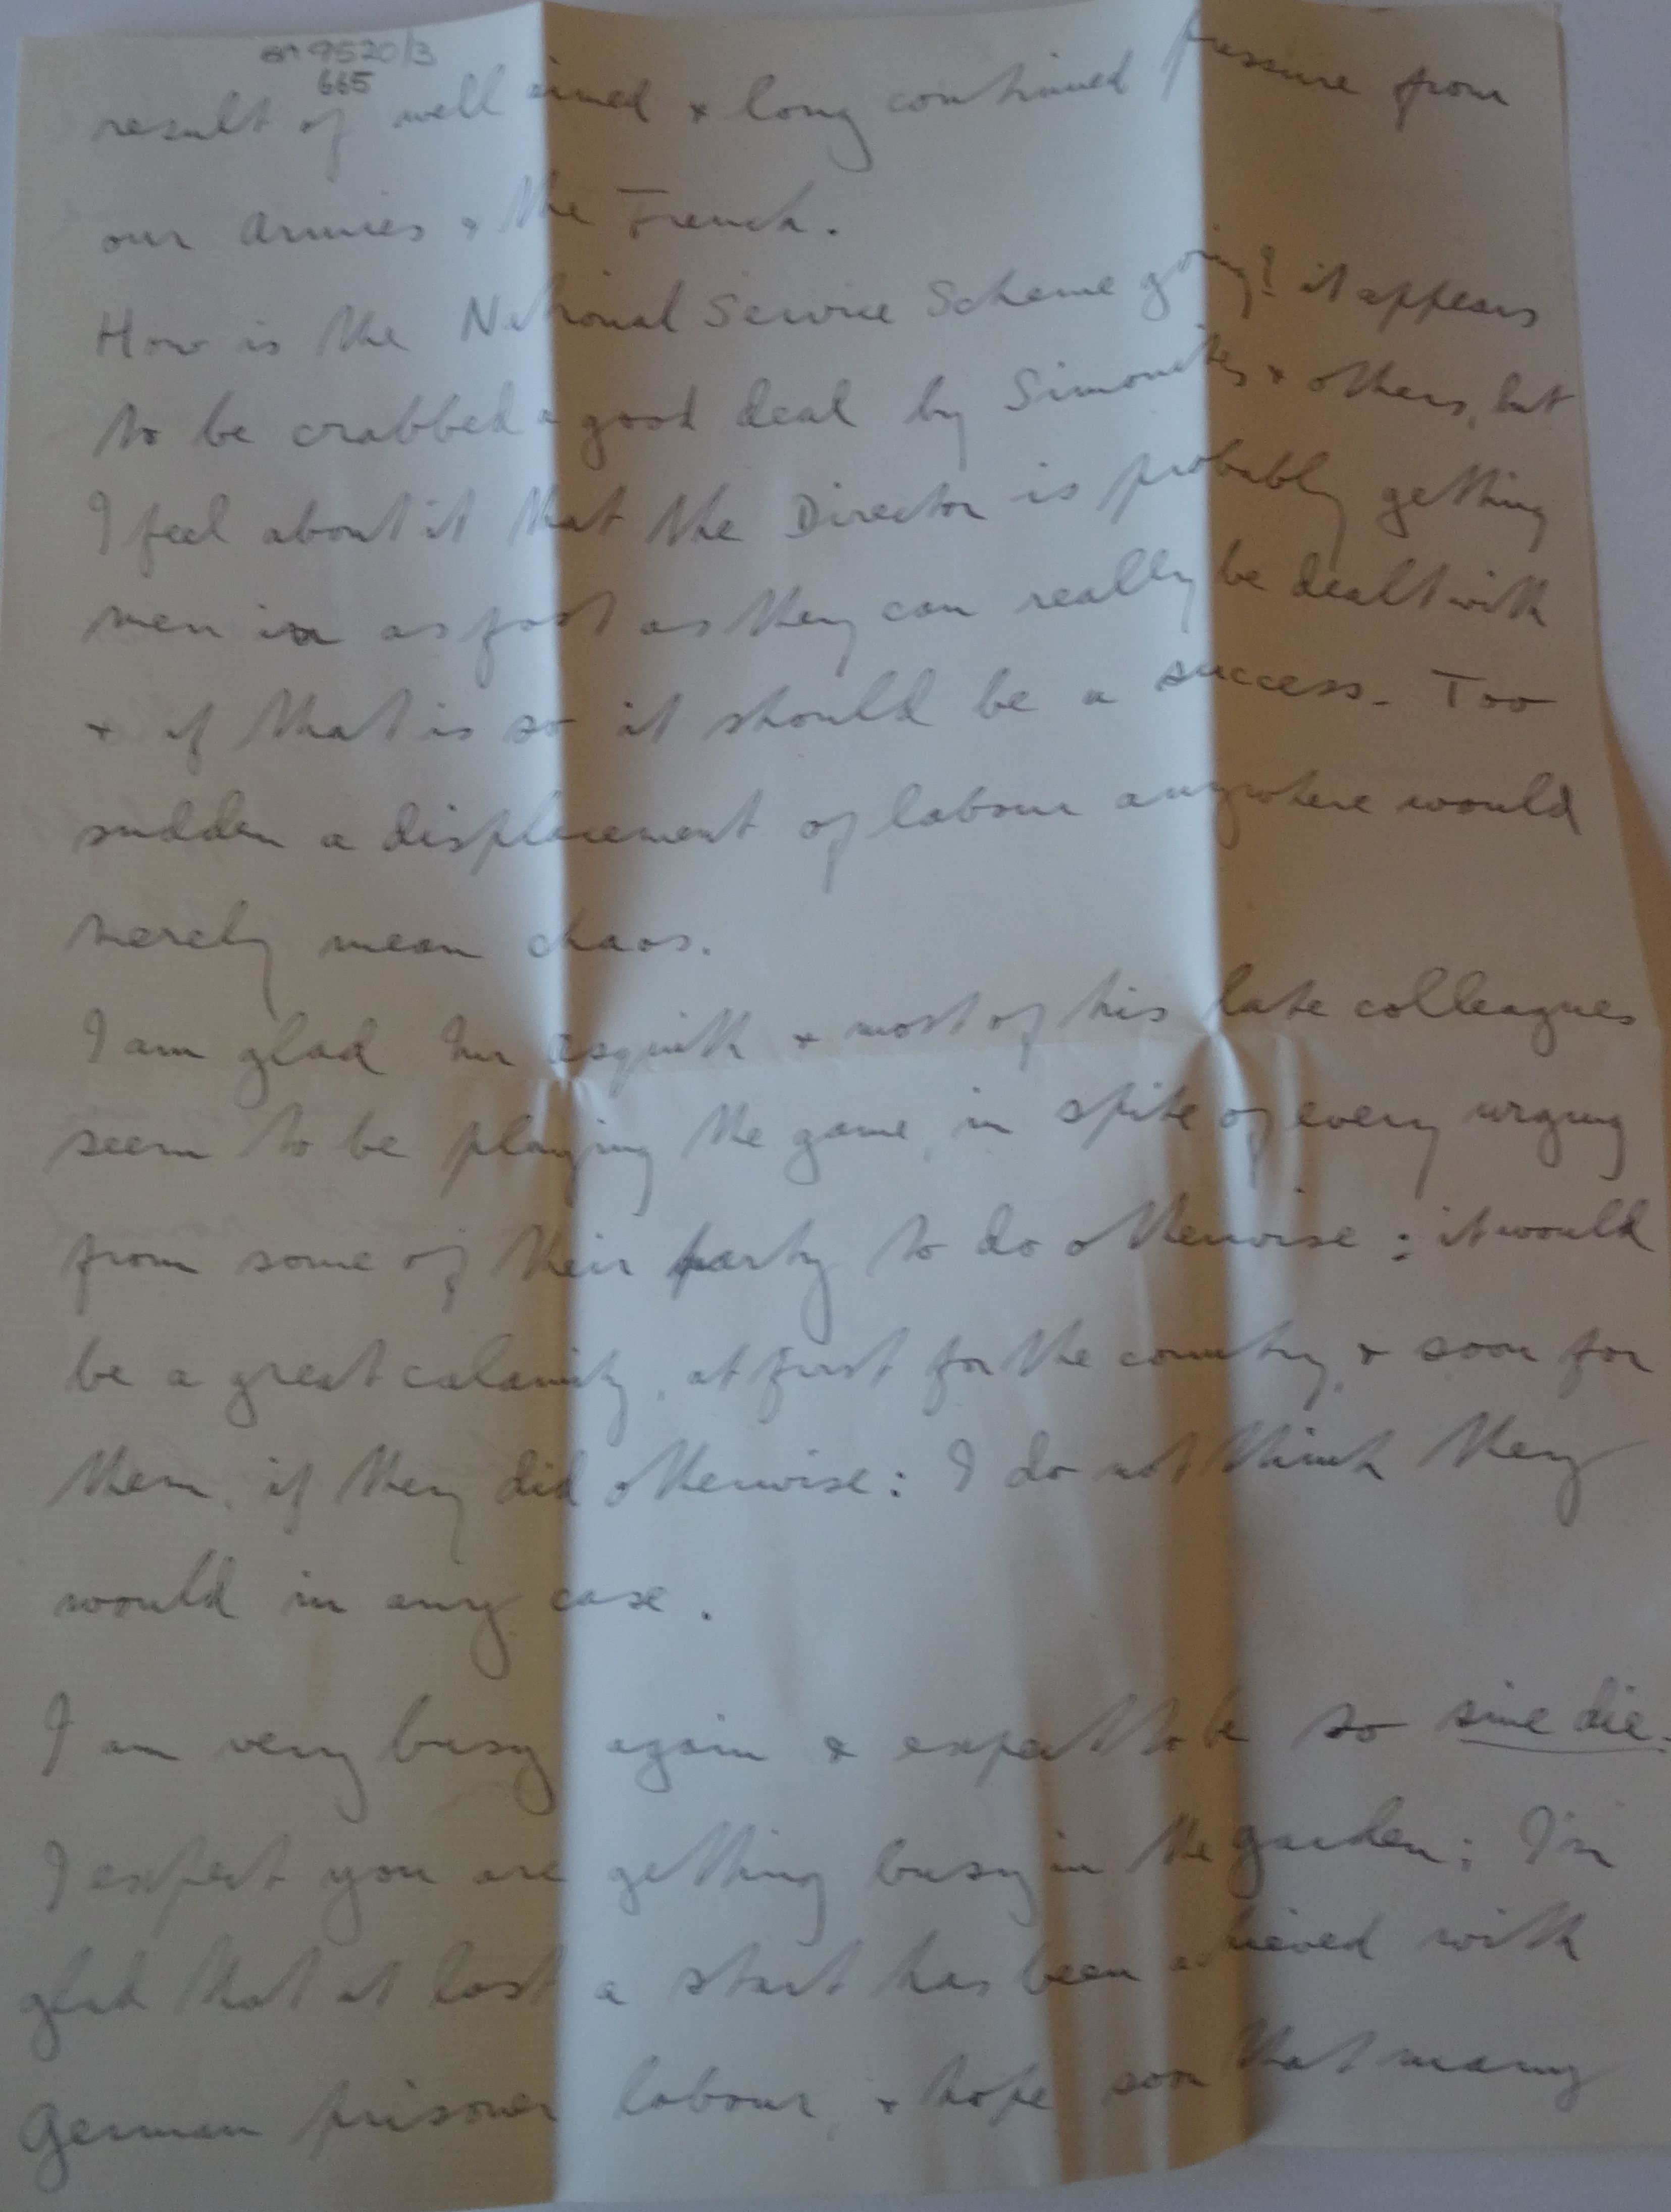 9520/3
665
result of well aimed & long continued pressure from
our armies & the French.
How is the National Service Scheme going? it appears
to be crabbed a good deal by Simonites & others, but
I feel about it that the Director is probably getting
men in as fast as they can really be dealt with
& if that is so it should be a success. Too
sudden a displacement of labour anywhere would
merely mean chaos.
I am glad Mr Asquith & most of his late colleagues
seem to be playing the game, in spite of every urging
from some of their party to do otherwise : it would
be a great calamity, at first for the country, & soon for
them, if they did otherwise : I do not think they
would in any case .
I am very busy again & expect to be so sine die.
I expect you are getting busy in the garden ; I'm
glad that at last a start has been achieved with
German prisoner labour, & hope soon that many